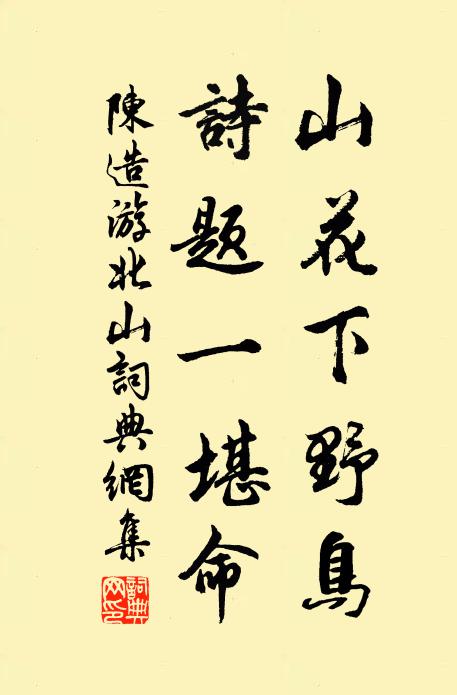 山花下野鳥
詩題一堪命
陳造游北山詞典網集
詞典网印